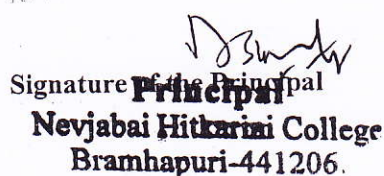 Signature of the Principal
Principal
Nevjabai Hitkarini College
Bramhapuri-441206.